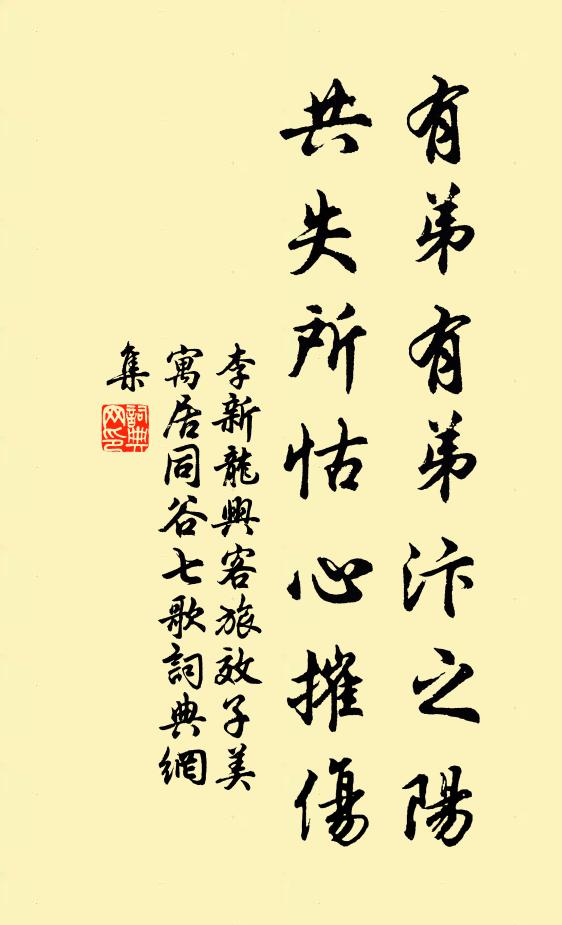 有弟有弟汴之陽
共失所怙心摧傷
李新龍興客旅效子美
寓居同谷七歌詞典網
集
詞典
网印